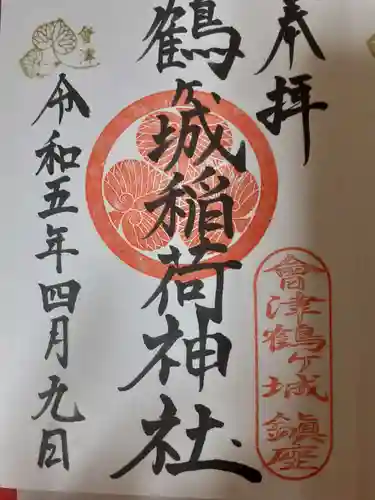 奉拝
會津鶴ヶ城鎮座
鶴ヶ城稲荷神社
令和五年四月九日
會津